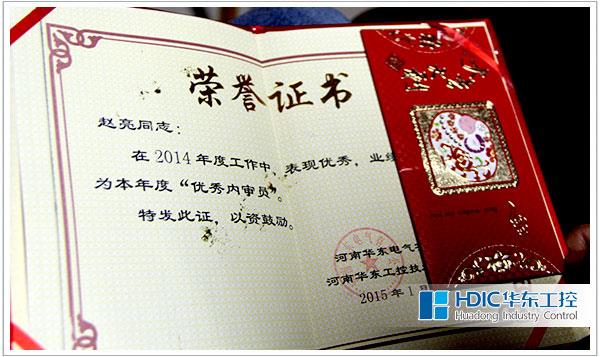 荣誉证书
赵亮同志：
在2014年度工作中，表现优秀，业绩
为本年度“优秀内审员”。
特发此证，以资鼓励。
河南华东电气
河南华东工控技
2015年1
HDIC华东工控
Huadong Industry Control